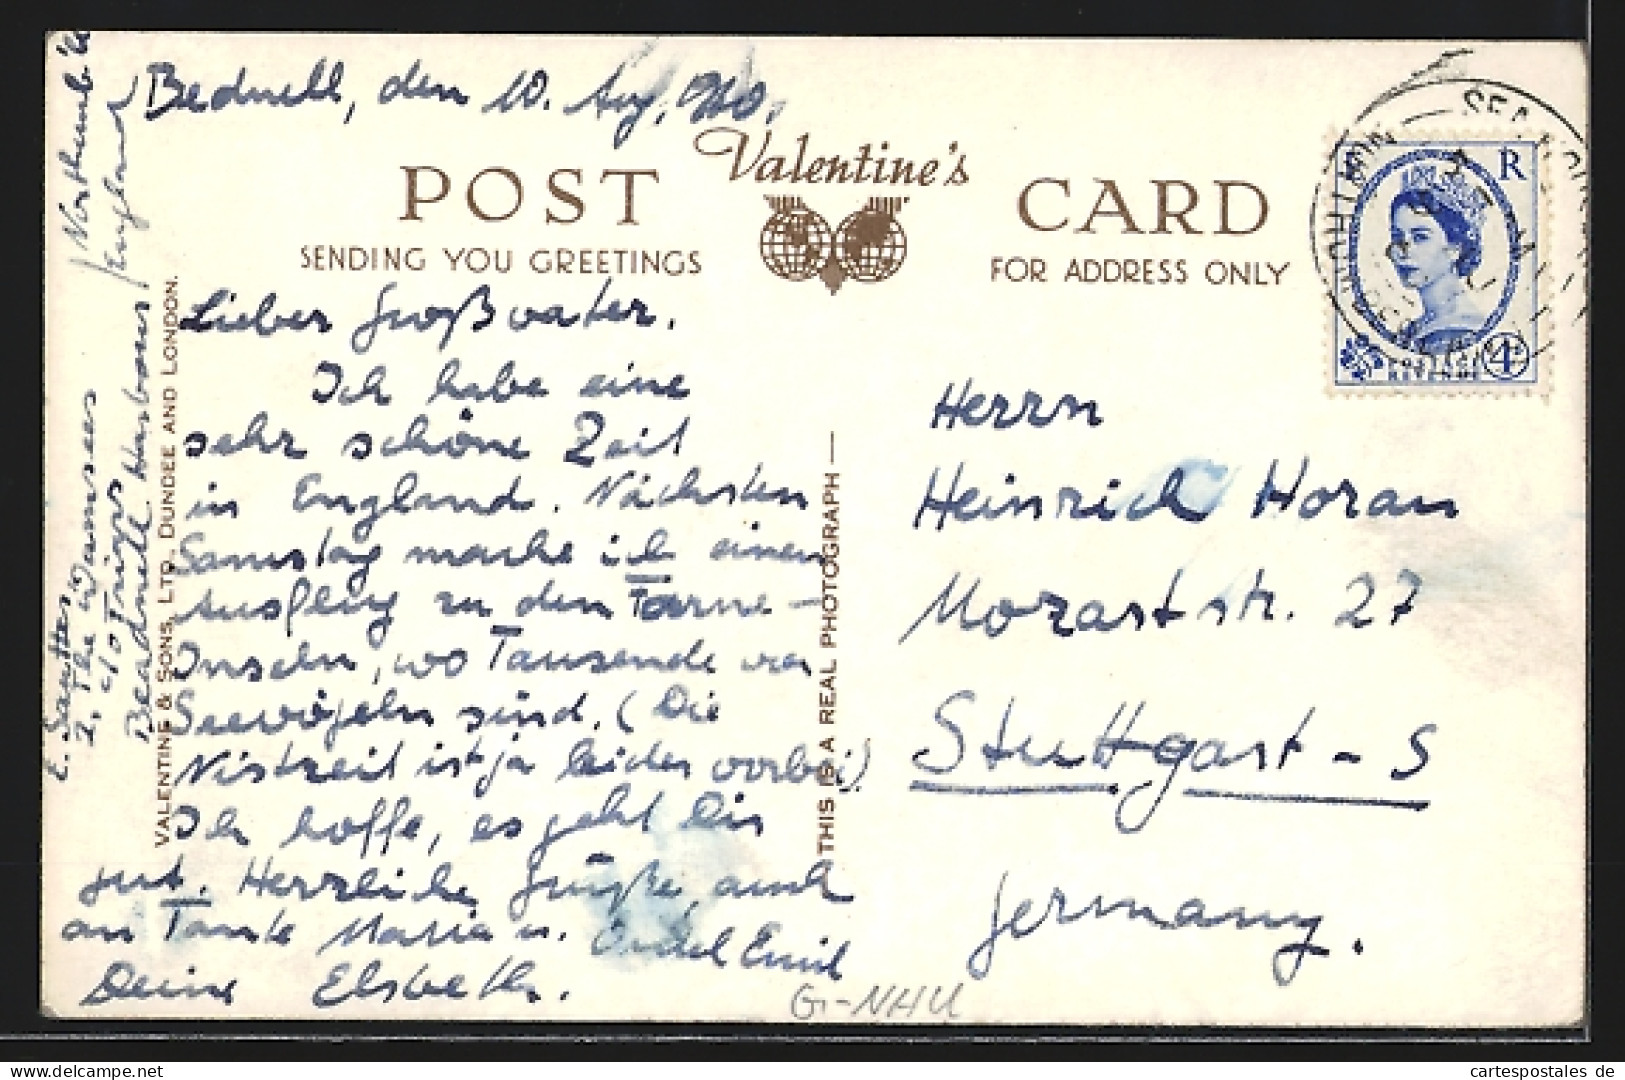 Bednell, den 10. Aug.
POST
Valentine's
CARD
SENDING YOU GREETINGS
FOR ADDRESS ONLY
Lieber Großvater.
Ich habe eine
sehr schöne Zeit
in England. Nächsten
Samstag mache ich einen
Ausflug zu den Farne-
Inseln, wo Tausende von
Seevögeln sind. (Die
Nistzeit ist ja leider vorbei)
Ich hoffe, es geht Dir
gut. Herzliche Grüße, auch
an Tante Maria u. Onkel Emil
Deine Elsbeth.
E. Sautter
2, The Wamses
c/o Trigs
Beadnell Harbour
England
VALENTINE & SONS, LTD., DUNDEE AND LONDON.
THIS IS A REAL PHOTOGRAPH
Herrn
Heinrich Horan
Mozartstr. 27
Stuttgart-S
Germany.
R
4D
POSTAGE
REVENUE
G-NHU
cartespostales de